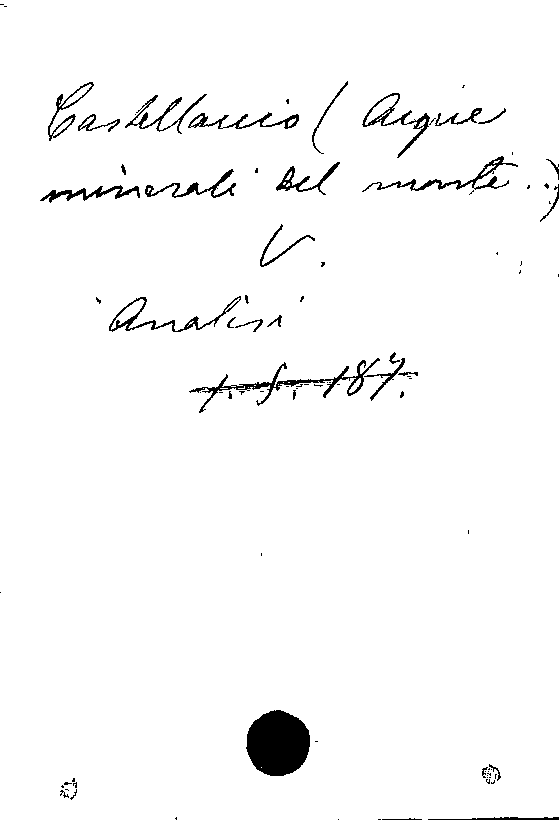 Castellaccio (Acque
minerali del monte..)
V.
Analisi
1. f. 187.